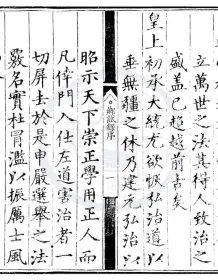 立萬世之法其得人致治之
盛蓋已超越前古矣
皇上初承大統尤欲恢弘治道以
垂無疆之休乃建元弘治以
試錄序
昭示天下崇正學用正人而
凡倖門入仕左道害治者一
切屏去於是申嚴選舉之法
覈名實杜冒濫以振厲士風